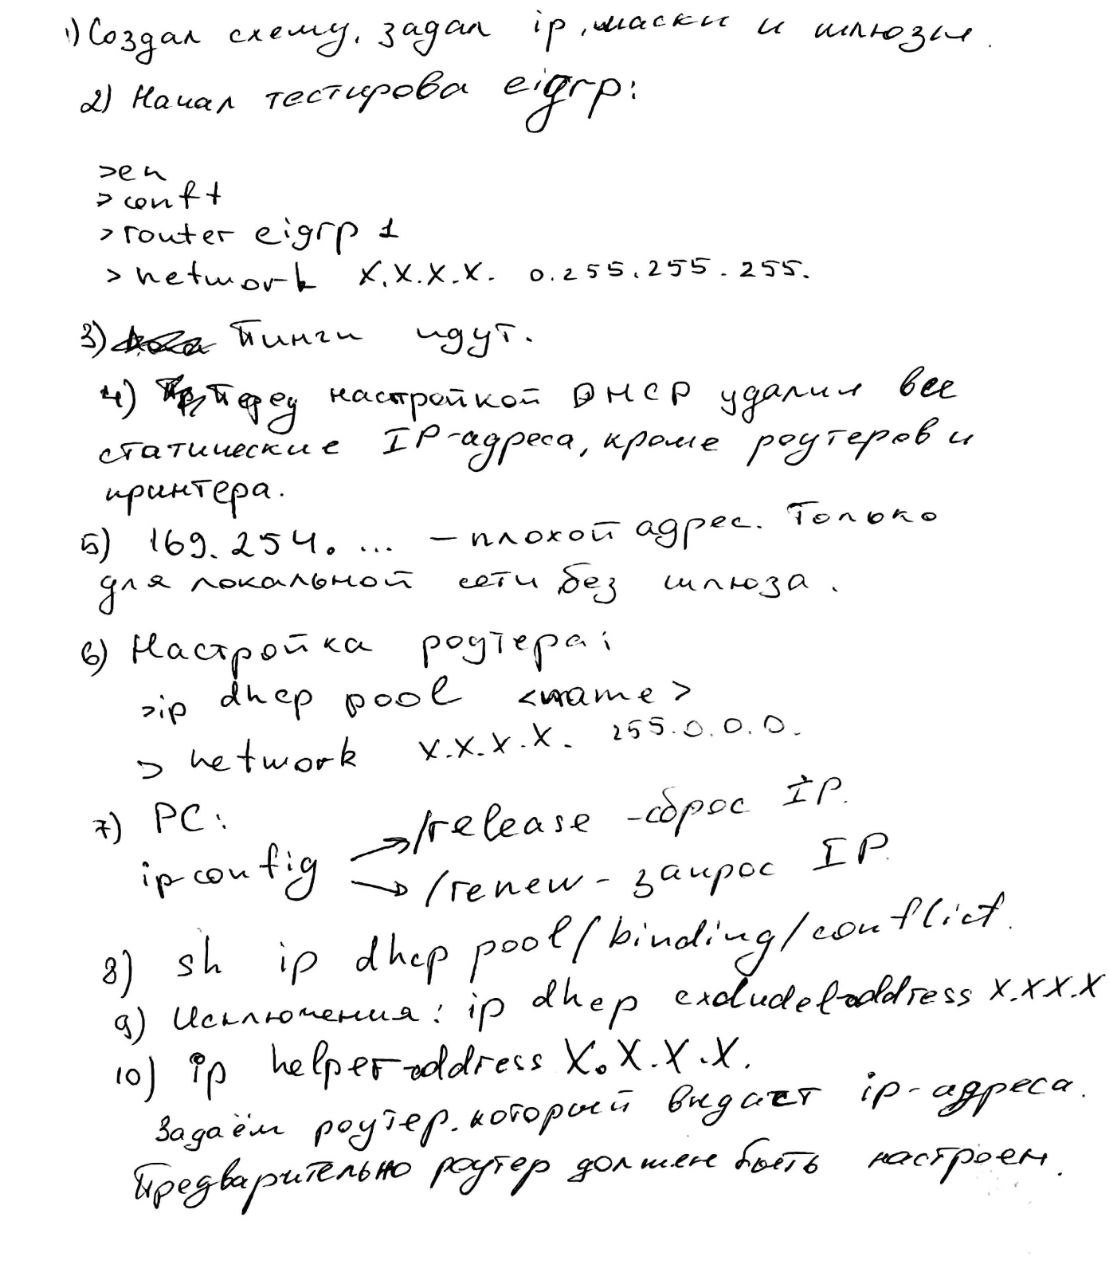 1) Создал схему, задал ip, маски и шлюзы.
2) Начал тестирова eigrp:
>en
>conf t
>router eigrp 1
>network X.X.X.X. 0.255.255.255.
3) Пинги идут.
4) Перед настройкой DHCP удалил все
статические IP-адреса, кроме роутеров и
принтера.
5) 169.254. ... - плохой адрес. Только
для локальной сети без шлюза.
6) Настройка роутера:
>ip dhcp pool <name>
> network X.X.X.X. 255.0.0.0.
7) PC:
/release - сброс IP.
ipconfig
/renew - запрос IP
8) sh ip dhcp pool/binding/conflict.
9) Исключения: ip dhcp excluded-address X.X.X.X
10) ip helper-address X.X.X.X.
Задаём роутер, который выдаст ip-адреса.
Предварительно роутер должен быть настроен.